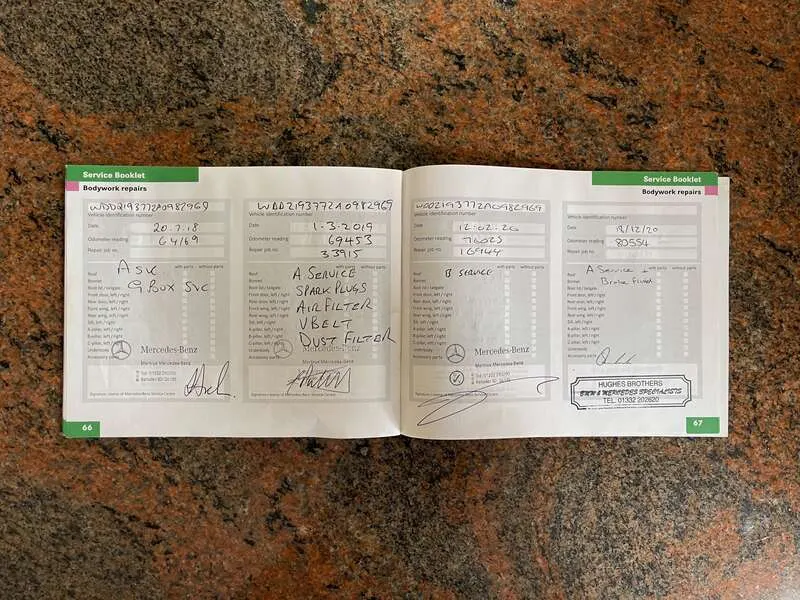 Service Booklet
Bodywork repairs
WDD2193772A0982969
Vehicle identification number
Date 20.7.18
Odometer reading 64169
Repair job no.
A SVC
G.BOX SVC
with parts without parts
Roof
Bonnet
Boot lid / tailgate
Front door, left / right
Rear door, left / right
Front wing, left / right
Rear wing, left / right
Sill, left / right
A-pillar, left / right
B-pillar, left / right
C-pillar, left / right
Underbody
Accessory parts
Mercedes-Benz
Mertrux Mercedes-Benz
66
WDD2193772A0982969
Vehicle identification number
Date 1-3-2019
Odometer reading 69453
Repair job no. 33915
A SERVICE
SPARK PLUGS
AIR FILTER
V BELT
DUST FILTER
with parts without parts
Roof
Bonnet
Boot lid / tailgate
Front door, left / right
Rear door, left / right
Front wing, left / right
Rear wing, left / right
Sill, left / right
A-pillar, left / right
B-pillar, left / right
C-pillar, left / right
Underbody
Accessory parts
Mercedes-Benz
Mertrux Mercedes-Benz
Service Booklet
Bodywork repairs
WDD2193772A0982969
Vehicle identification number
Date 12.02.20
Odometer reading
Repair job no. 16944
B SERVICE
with parts without parts
Roof
Bonnet
Boot lid / tailgate
Front door, left / right
Rear door, left / right
Front wing, left / right
Rear wing, left / right
Sill, left / right
A-pillar, left / right
B-pillar, left / right
C-pillar, left / right
Underbody
Accessory parts
Mercedes-Benz
Mertrux Mercedes-Benz
Vehicle identification number
Date /12/20
Odometer reading 80554
Repair job no.
A Service +
Brake Fluid
with parts without parts
Roof
Bonnet
Boot lid / tailgate
Front door, left / right
Rear door, left / right
Front wing, left / right
Rear wing, left / right
Sill, left / right
A-pillar, left / right
B-pillar, left / right
C-pillar, left / right
Underbody
Accessory parts
HUGHES BROTHERS
BMW & MERCEDES SPECIALISTS
TEL. 01332 202620
67